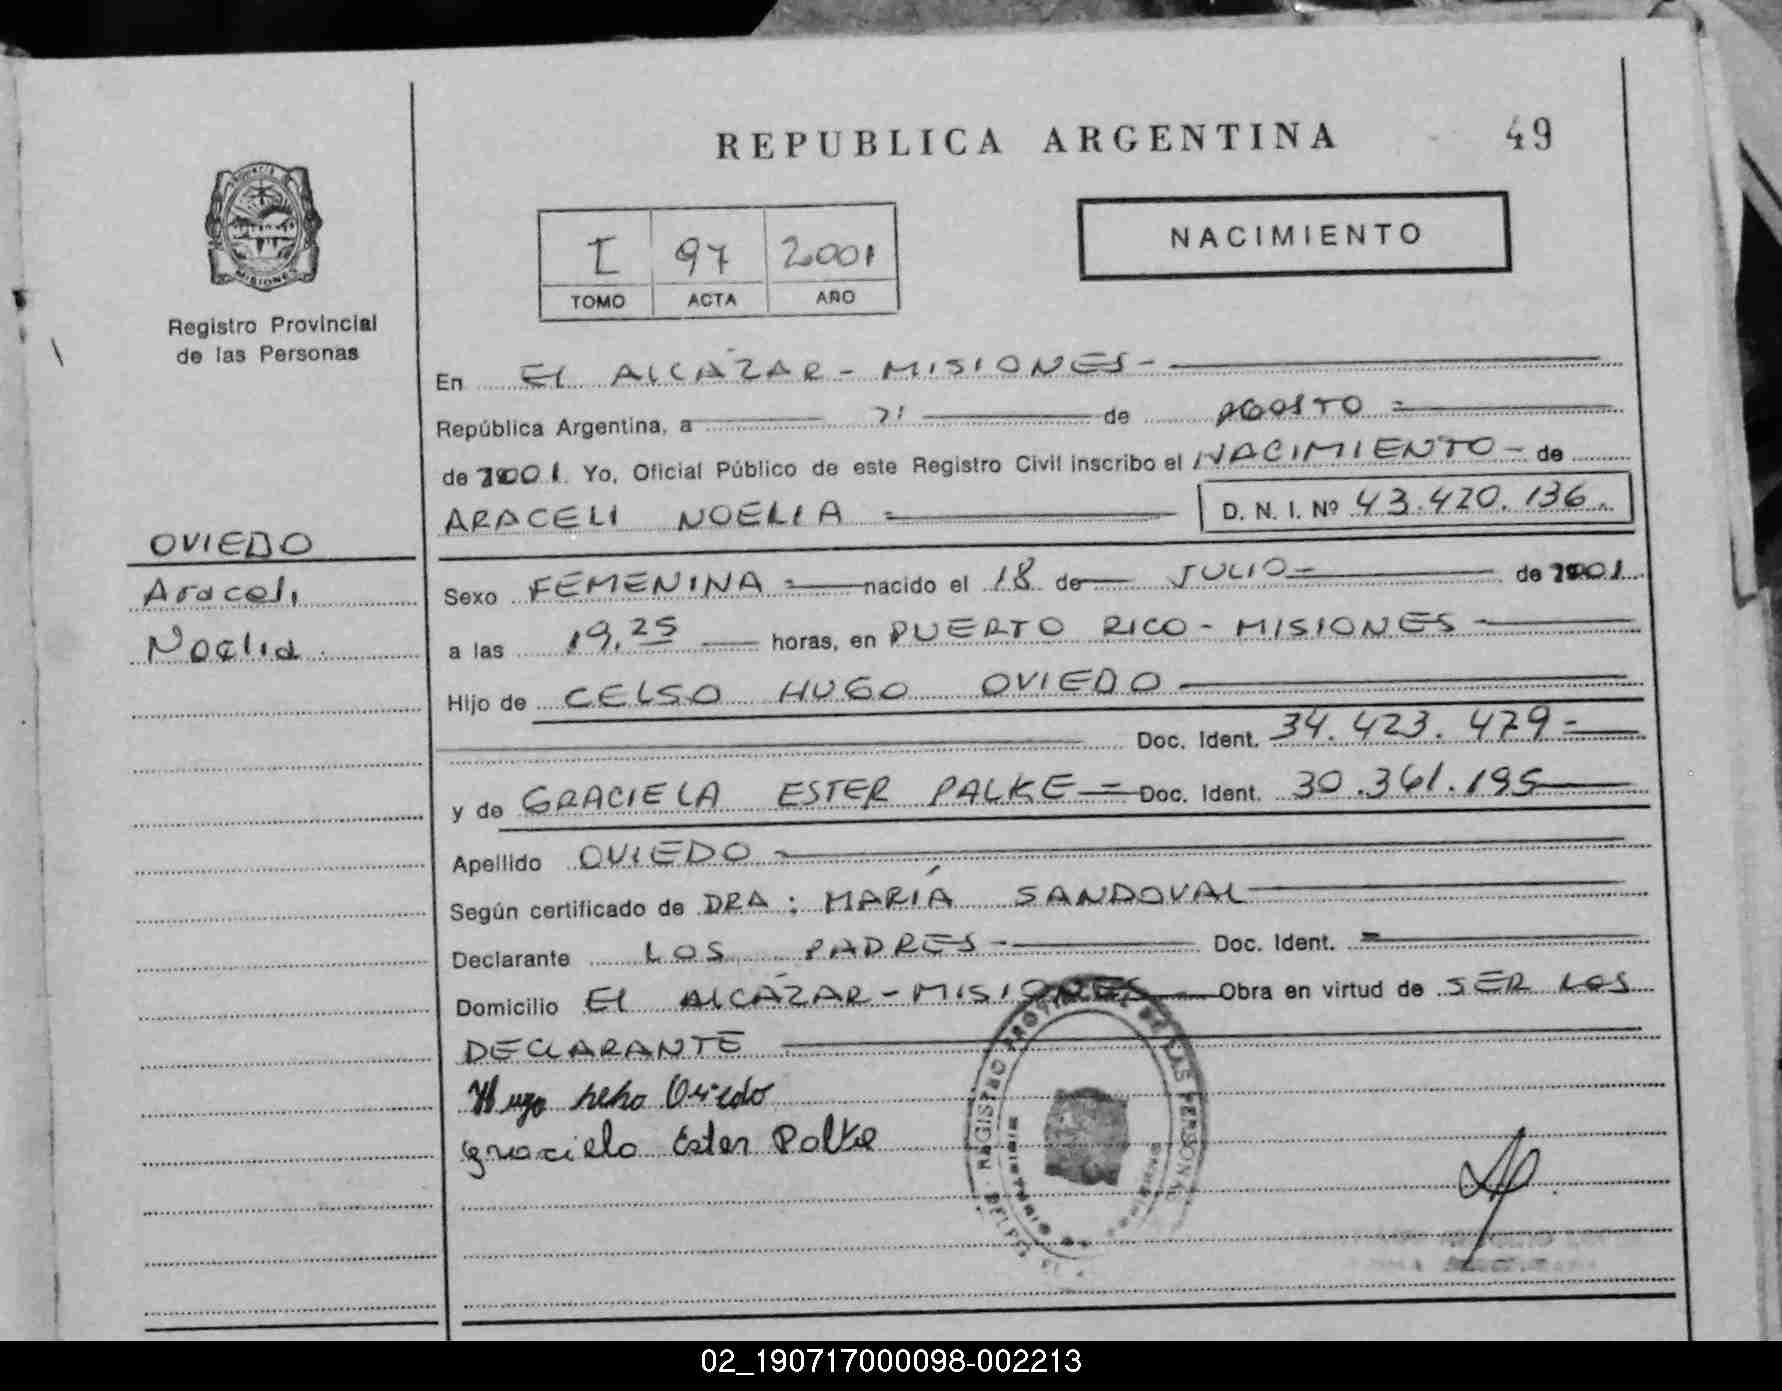 REPUBLICA ARGENTINA
49
PROVINCIA DE
MISIONES
Registro Provincial
de las Personas
I 97 2001
TOMO ACTA AÑO
NACIMIENTO
En El ALCÁZAR - MISIONES -
República Argentina, a 21 de AGOSTO =
de 2001. Yo, Oficial Público de este Registro Civil inscribo el NACIMIENTO - de
ARACELI NOELIA = D. N. I. Nº 43.420.136.
OVIEDO
Araceli
Noelia.
Sexo FEMENINA = nacido el 18 de JULIO = de 2001
a las 19,25 horas, en PUERTO RICO - MISIONES -
Hijo de CELSO HUGO OVIEDO
Doc. Ident. 34.423.479 =
y de GRACIELA ESTER PALKE = Doc. Ident. 30.361.195
Apellido OVIEDO
Según certificado de DRA : MARÍA SANDOVAL
Declarante LOS PADRES - Doc. Ident. -
Domicilio El ALCÁZAR - MISIONES Obra en virtud de SER LOS
DECLARANTE
Hugo Oviedo
Graciela Ester Palke
REGISTRO PROVINCIAL DE LAS PERSONAS
02_190717000098-002213